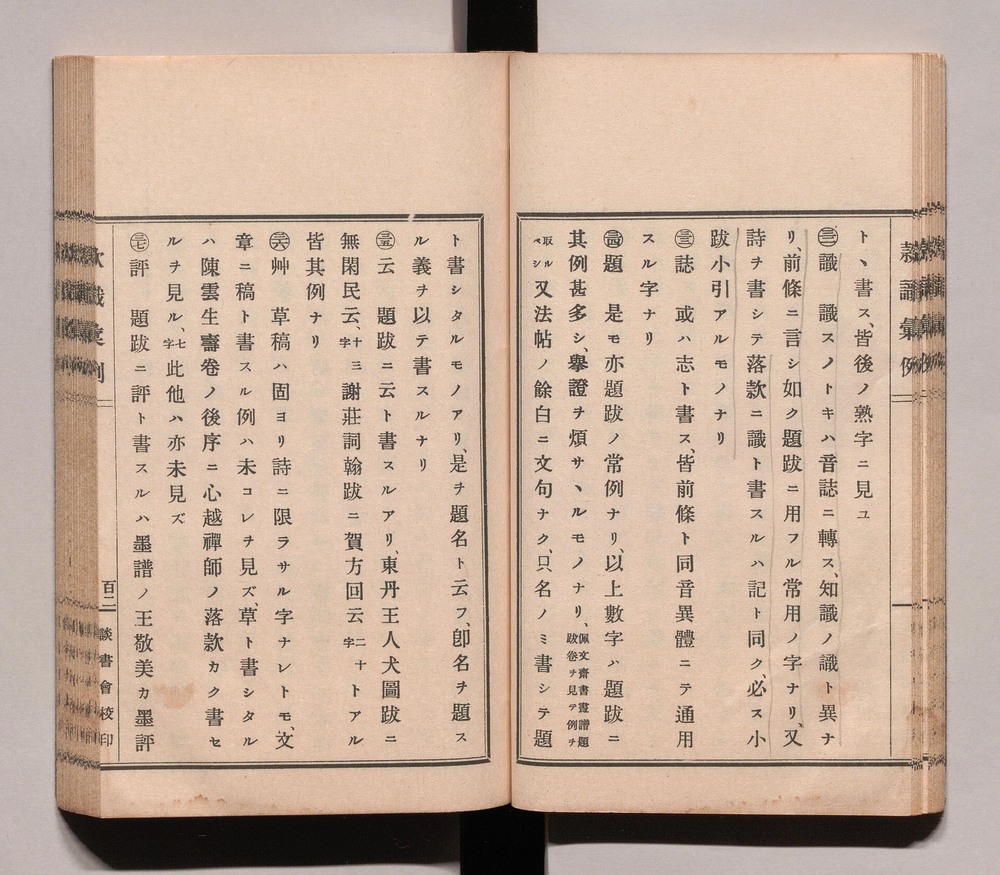 トヽ書ス、皆後ノ熟字ニ見ユ
㉜識　識スノトキハ音誌ニ轉ス、知識ノ識ト異ナ
リ、前條ニ言シ如ク題跋ニ用フル常用ノ字ナリ、又
詩ヲ書シテ落款ニ識ト書スルハ記ト同ク、必ス小
跋小引アルモノナリ
㉝誌　或ハ志ト書ス、皆前條ト同音異體ニテ通用
スル字ナリ
㉞題　是モ亦題跋ノ常例ナリ、以上數字ハ題跋ニ
其例甚多シ、擧證ヲ煩サヽルモノナリ、佩文齋書畫譜題跋卷ヲ見テ例ヲ
取ルベシ又法帖ノ餘白ニ文句ナク、只名ノミ書シテ題
ト書シタルモノアリ、是ヲ題名ト云フ、卽名ヲ題ス
ル義ヲ以テ書スルナリ
㉟云　題跋ニ云ト書スルアリ、東丹王人犬圖跋ニ
無閑民云、十三字謝莊詞翰跋ニ賀方回云二十字トアル
皆其例ナリ
㊱艸　草稿ハ固ヨリ詩ニ限ラサル字ナレトモ、文
章ニ稿ト書スル例ハ未コレヲ見ズ、草ト書シタル
ハ陳雲生審卷ノ後序ニ心越禪師ノ落款カク書セ
ルヲ見ル、七字此他ハ亦未見ズ
㊲評　題跋ニ評ト書スルハ墨譜ノ王敬美カ墨評
百二
談書會校印